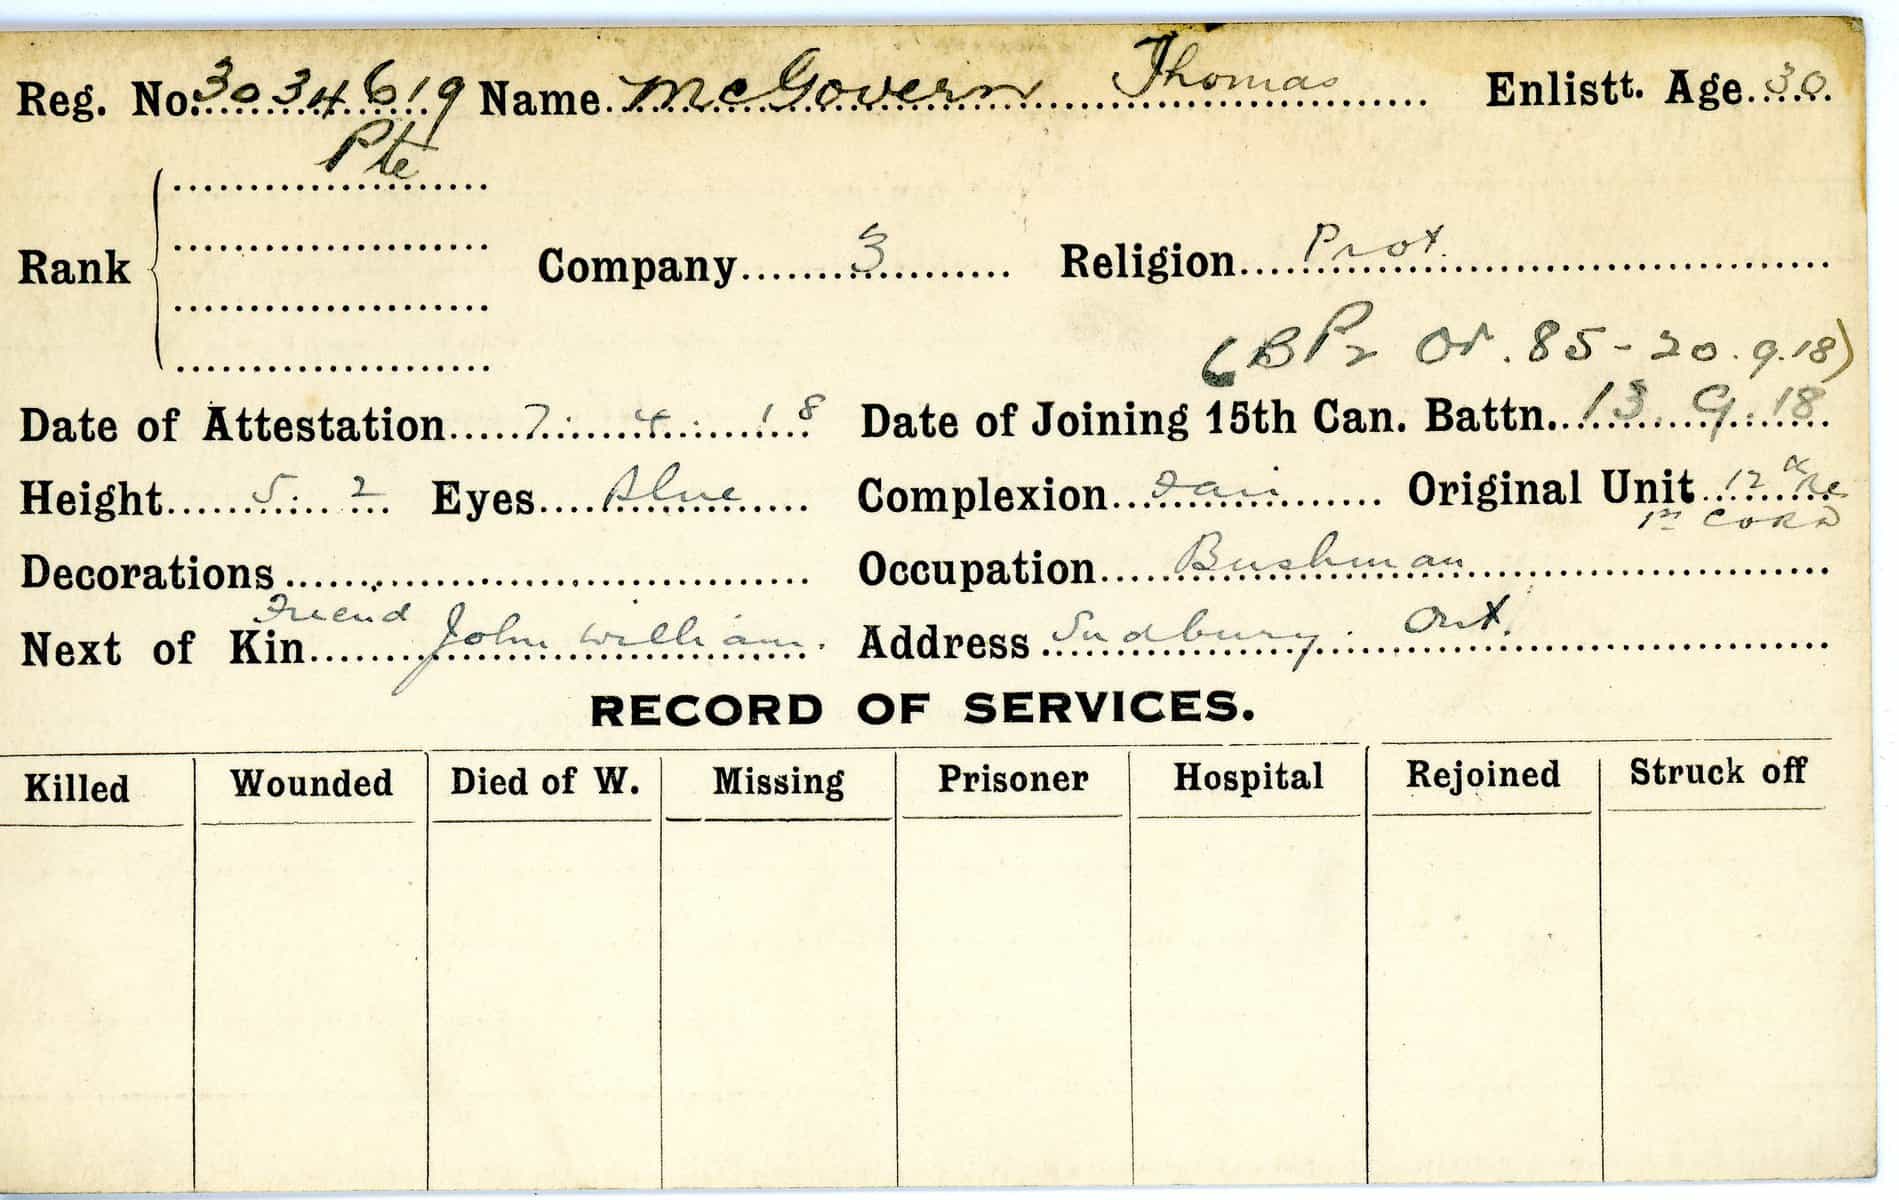 Reg. No. 3034619 Name McGovern Thomas Enlistt. Age 30
Pte
Rank Company 3 Religion Prot.
(BP2 Or. 85 - 20.9.18)
Date of Attestation 7. 4. 18 Date of Joining 15th Can. Battn. 13.9.18
Height 5. 2 Eyes Blue Complexion Fair Original Unit 12th Re
1st CORD
Decorations Occupation Bushman
Friend
Next of Kin John William. Address Sudbury. Ont.
RECORD OF SERVICES.
Killed Wounded Died of W. Missing Prisoner Hospital Rejoined Struck off